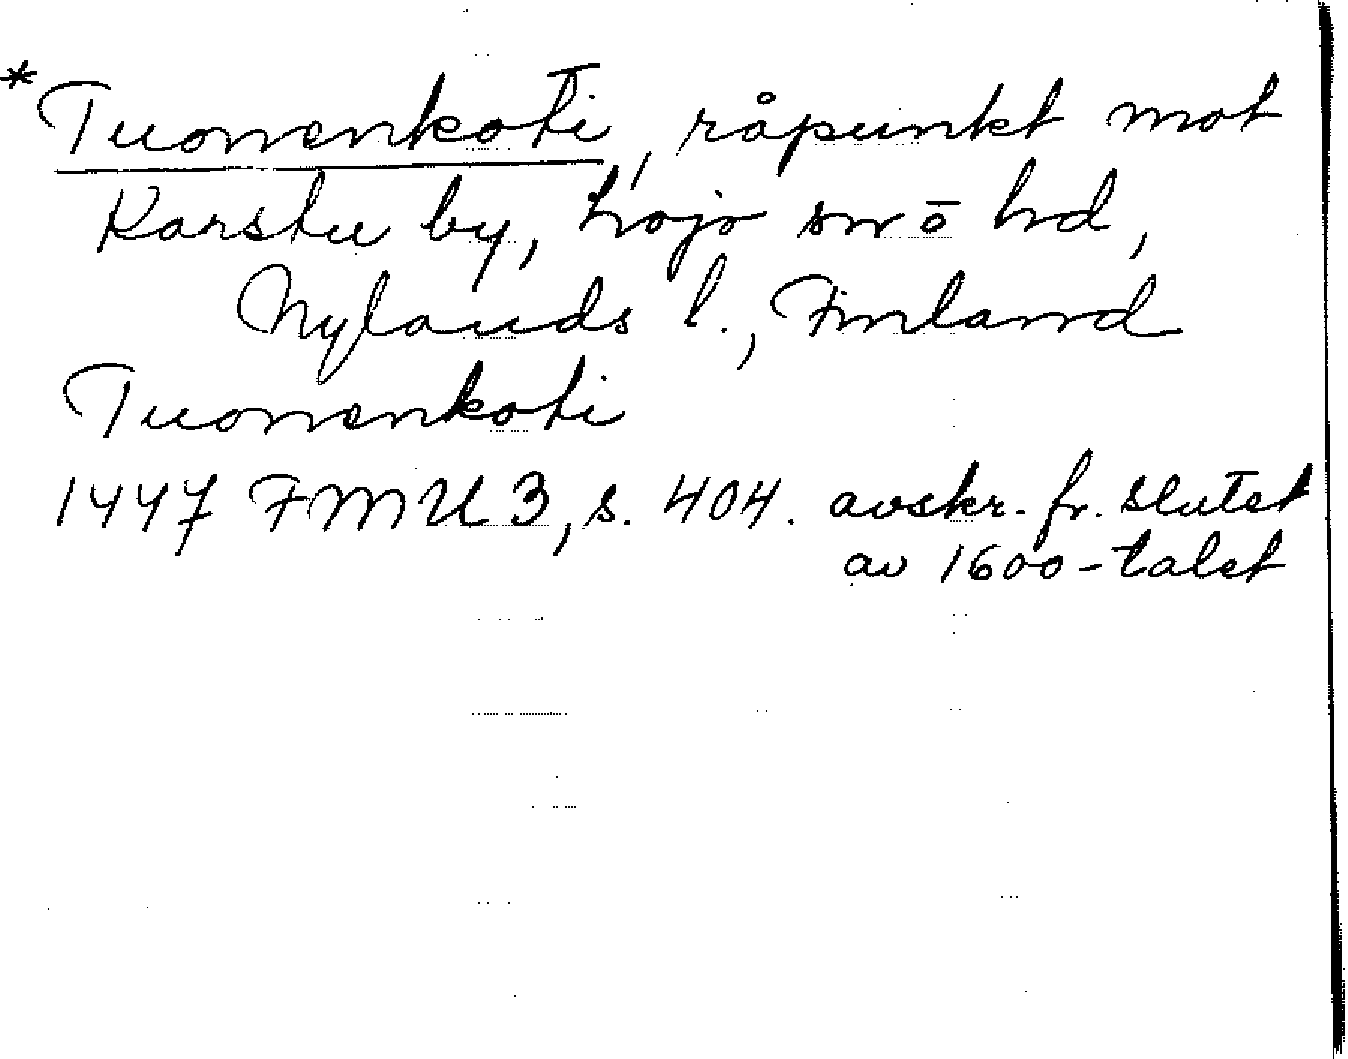 * Tuonenkoti, råpunkt mot
Karstu by, Lojo sn o hd,
Nylands l., Finland
Tuonenkoti
1447 FMU 3, s. 404. avskr. fr. slutet
av 1600-talet